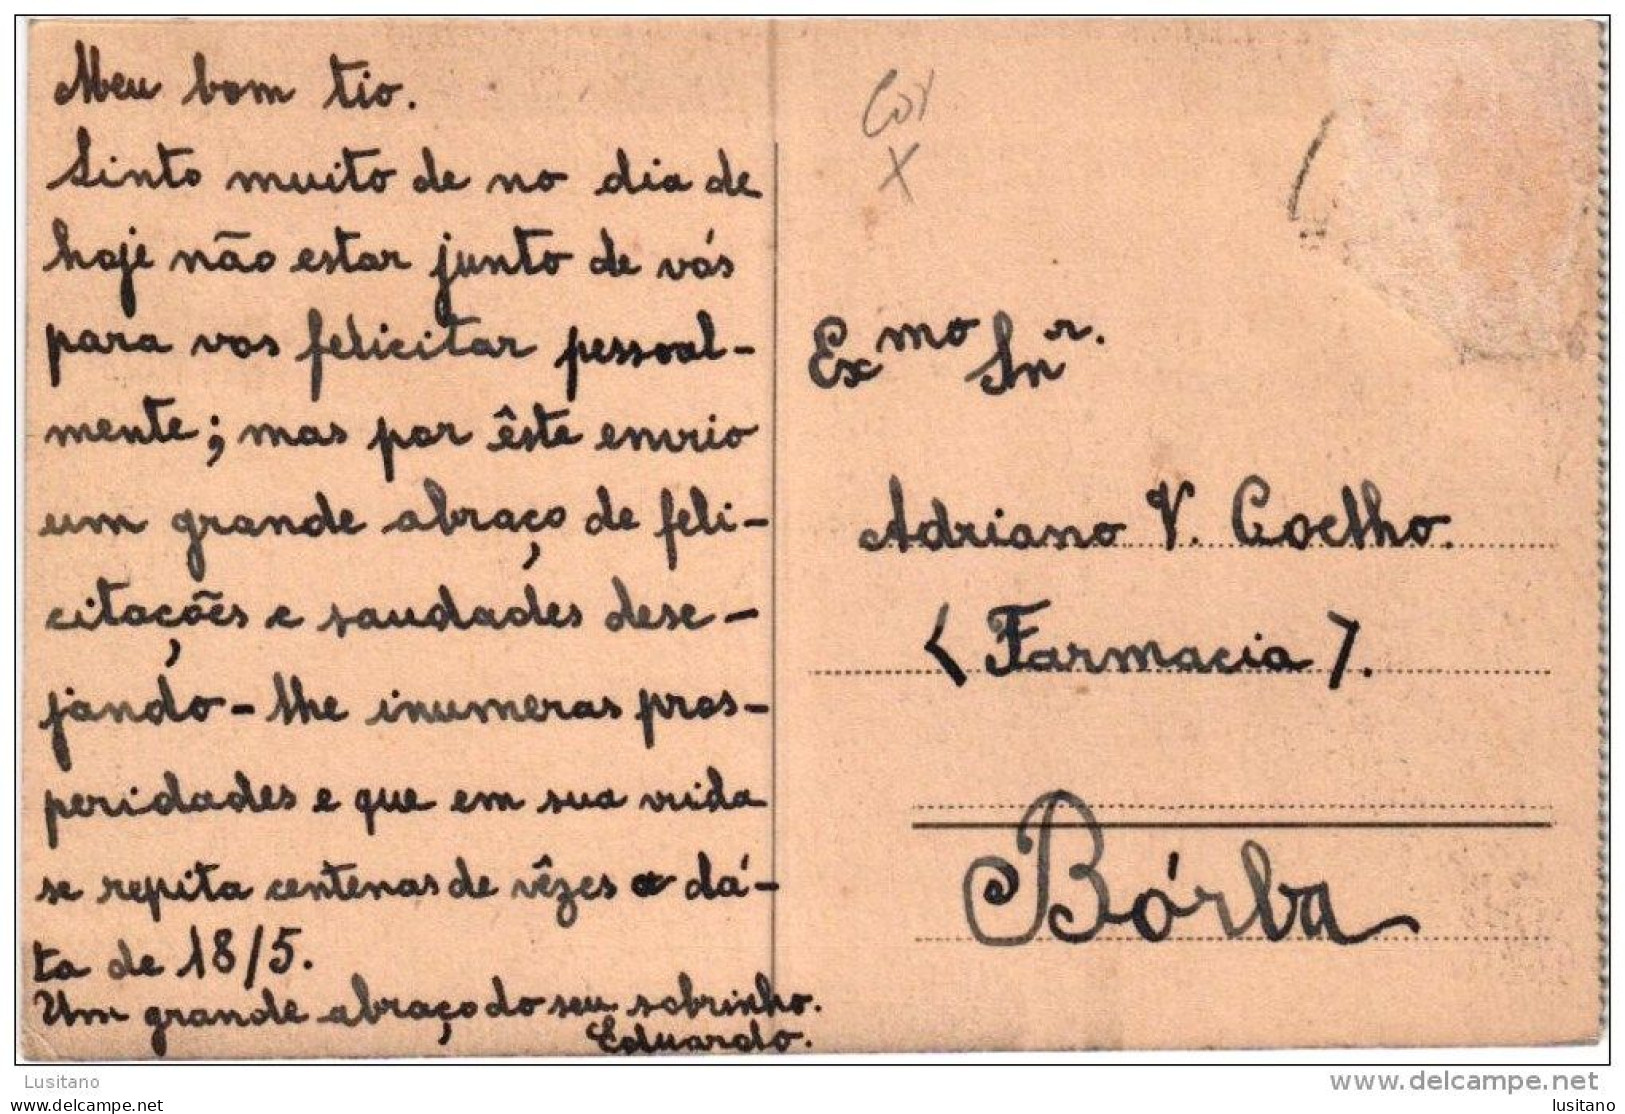 Meu bom tio.
Sinto muito de no dia de
hoje não estar junto de vós
para vos felicitar pessoal-
mente; mas por êste envio
um grande abraço de feli-
citações e saudades dese-
jando-lhe inumeras pros-
peridades e que em sua vida
se repita centenas de vêzes a dá-
ta de 18/5.
Um grande abraço do seu sobrinho.
Eduardo.
X
Exmo Snr.
Adriano V. Coelho.
(Farmacia).
Bórba
Lusitano
www.delcampe.net
lusitano
lusitano